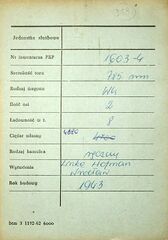 Jednostka służbowa
Nr inwentarza PKP 1603-4
Szerokość toru 785 mm
Rodzaj wagonu Wk
Ilość osi 2
Ładowność w t. 8
Ciężar własny 4400
Rodzaj hamulca ręczny
Wytwórnia Linke Hofman
Wrocław
Rok budowy 1943